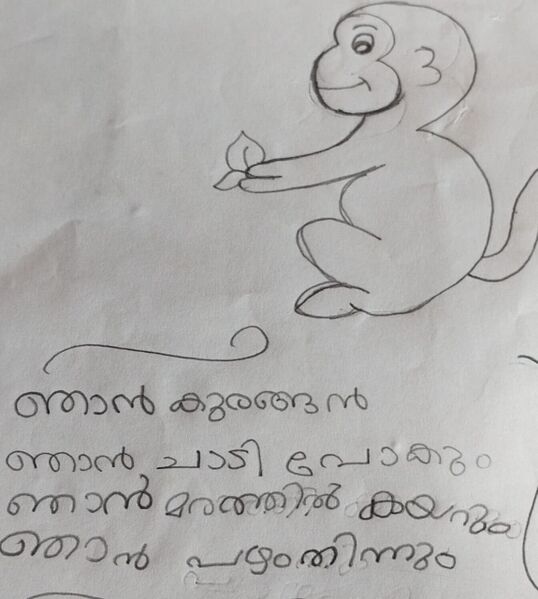 ഞാൻ കുരങ്ങൻ
ഞാൻ ചാടി പോകും
ഞാൻ മരത്തിൽ കയറും
ഞാൻ പഴംതിന്നും